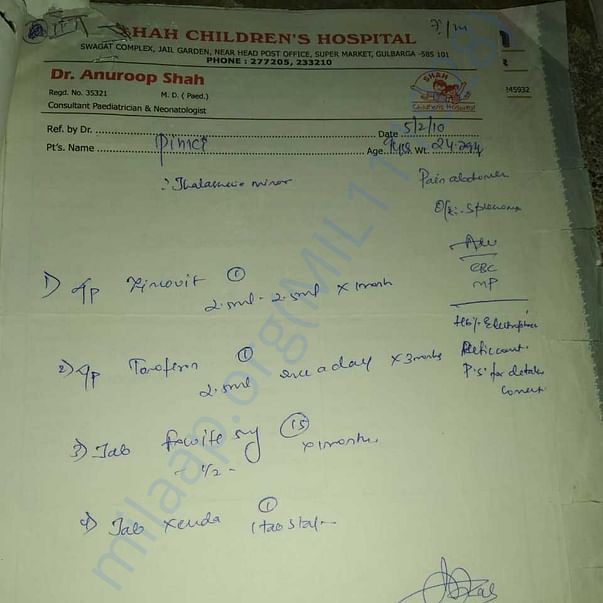 SHAH CHILDREN'S HOSPITAL
SWAGAT COMPLEX, JAIL GARDEN, NEAR HEAD POST OFFICE, SUPER MARKET, GULBARGA -585 101
PHONE : 277205, 233210
Dr. Anuroop Shah
Regd. No. 35321 M. D. ( Paed.)
Consultant Paediatrician & Neonatologist
SHAH
Children's Hospital
245932
Ref. by Dr. Date 5/2/10
Pt's. Name Age Wt.
Thalassemia minor
Pain abdomen
O/E:-
Adv
CBC
MP
1) Syp Zincovit 1
2.5ml - 2.5ml x 1 month
Hb% Electrophoresis
Retic count
P.S. for detailed
2) Syp 1
2.5ml once a day x 3 months
3) Tab 5mg 15
- 1/2 - x 1 months
4) Tab 1
1 tab stat
milaap.org(MIL11